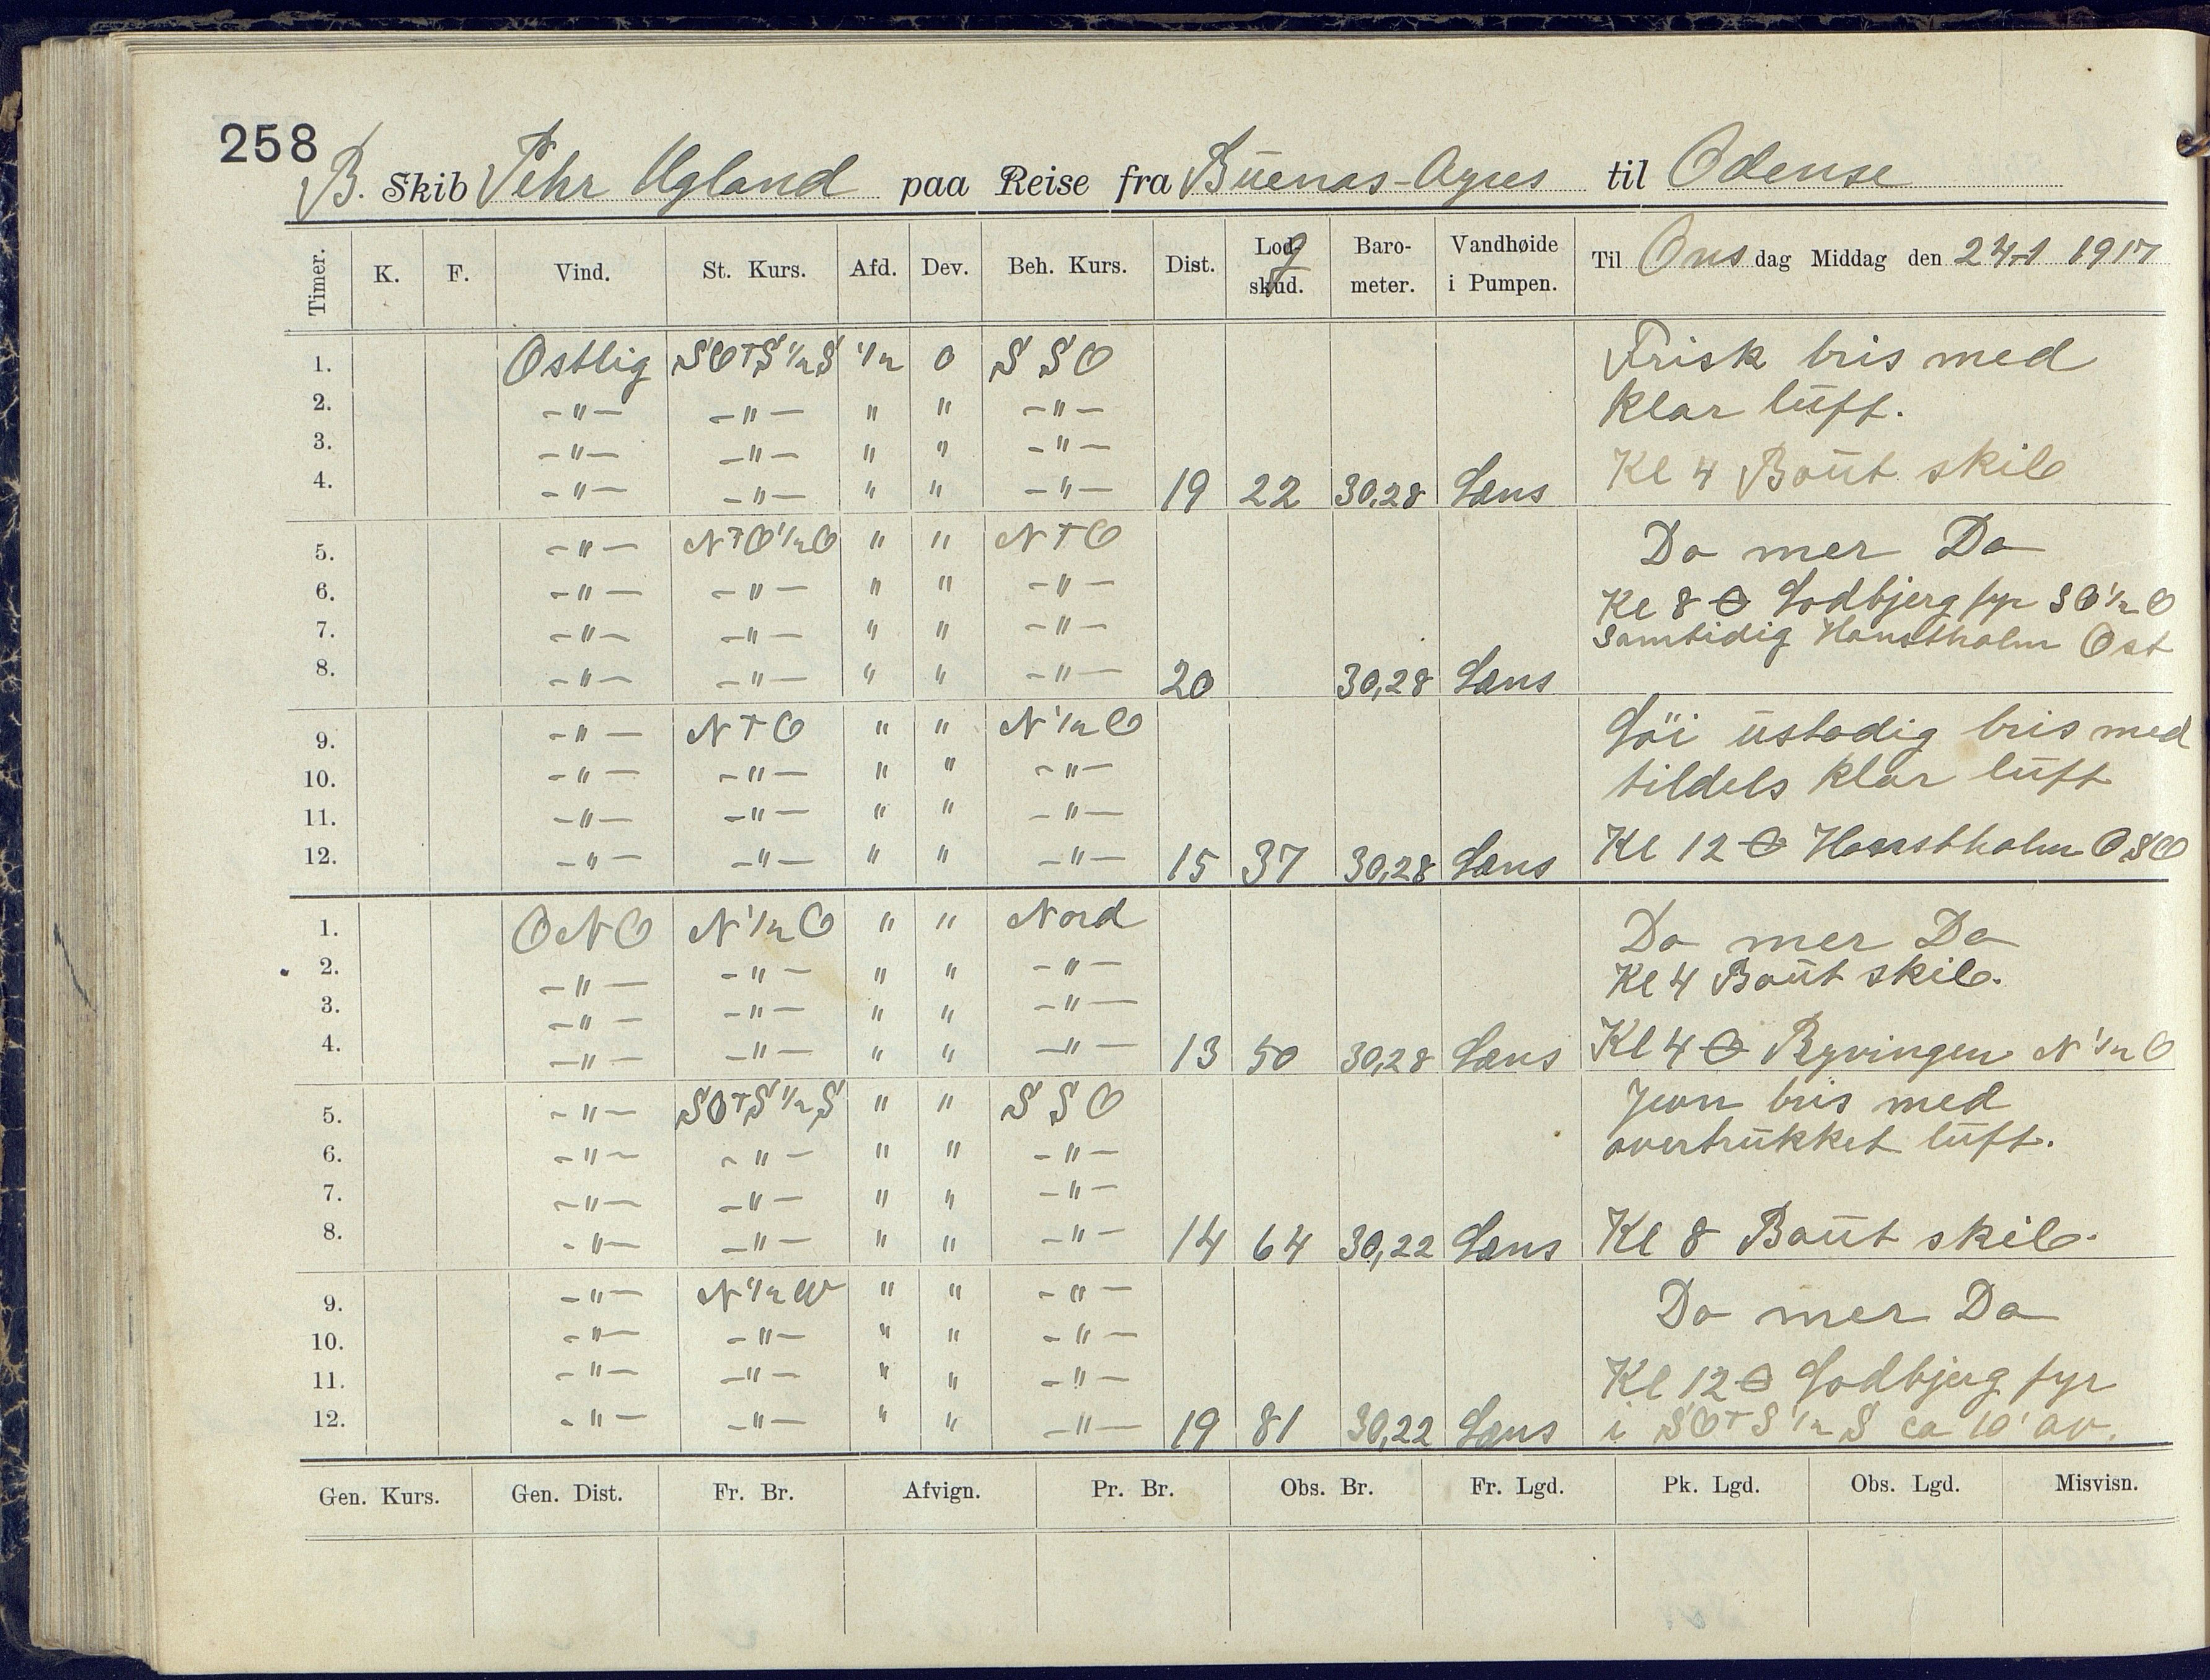 258
B. Skib Pehr Ugland paa Reise fra Buenas-Ayres til Odense
Timer. K. F. Vind. St. Kurs. Afd. Dev. Beh. Kurs. Dist. Lodg skud. Baro- meter. Vandhøide i Pumpen. Til Onsdag Middag den 24-1 1917
1. Ostlig SOTS 1/2 S 1/2 0 S S O Frisk bris med
2. -"- -"- " " -"- klar lüft.
3. -"- -"- " " -"-
4. -"- -"- " " -"- 19 22 30,28 Læns Kl 4 Boüt skib
5. -"- NTO 1/2 O " " NTO Do mer Do
6. -"- -"- " " -"- Kl 8 Lodbjerg fyr SO 1/2 O
7. -"- -"- " " -"- samtidig Hanstholm Ost
8. -"- -"- " " -"- 20 30,28 Læns
9. -"- NTO " " N 1/2 O Löi üstadig bris med
10. -"- -"- " " -"- tildels klar lüft
11. -"- -"- " " -"-
12. -"- -"- " " -"- 15 37 30,28 Læns Kl 12 Hanstholm OSO
1. ONO N 1/2 O " " Nord Do mer Do
2. -"- -"- " " -"- Kl 4 Boüt skib.
3. -"- -"- " " -"-
4. -"- -"- " " -"- 13 50 30,28 Læns Kl 4 Ryvingen N 1/2 O
5. -"- SOTS 1/2 S " " S S O Jevn bris med
6. -"- -"- " " -"- overtrükket lüft.
7. -"- -"- " " -"-
8. -"- -"- " " -"- 14 64 30,22 Læns Kl 8 Boüt skib.
9. -"- N 1/2 W " " -"- Do mer Do
10. -"- -"- " " -"-
11. -"- -"- " " -"- Kl 12 Lodbjerg fyr
12. -"- -"- " " -"- 19 81 30,22 Læns i SOTS 1/2 S ca 10' av.
Gen. Kurs. Gen. Dist. Fr. Br. Afvign. Pr. Br. Obs. Br. Fr. Lgd. Pk. Lgd. Obs. Lgd. Misvisn.